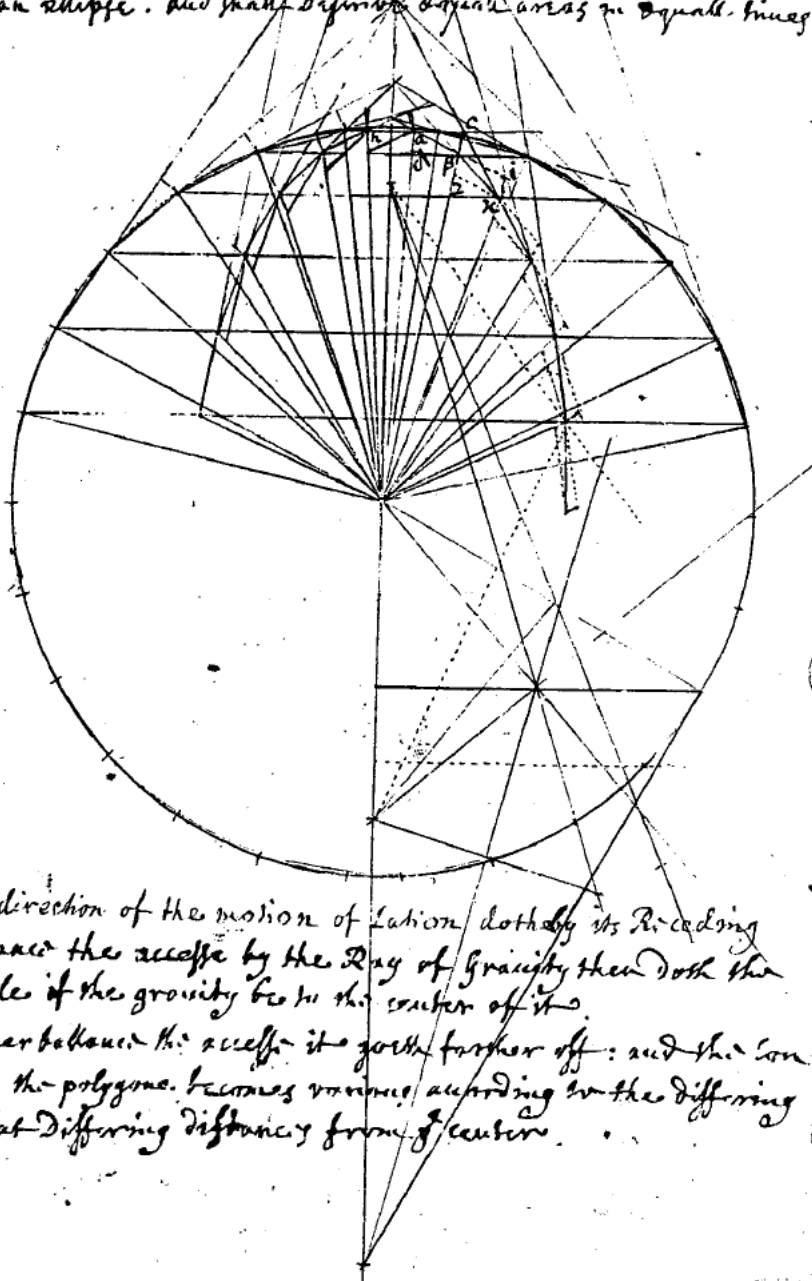 an ellipse. and shall Describe Equall areas in Equall times
c
h
a
g
β
i
2
x
L
direction of the motion of Lation doth by its Receding
ance the accesse by the Ray of Gravity then doth the
le if the gravity be to the center of it.
er ballance the accesse it goeth farther off: and the
the polygone becomes various according to the differing
at Differing distances from ye center.